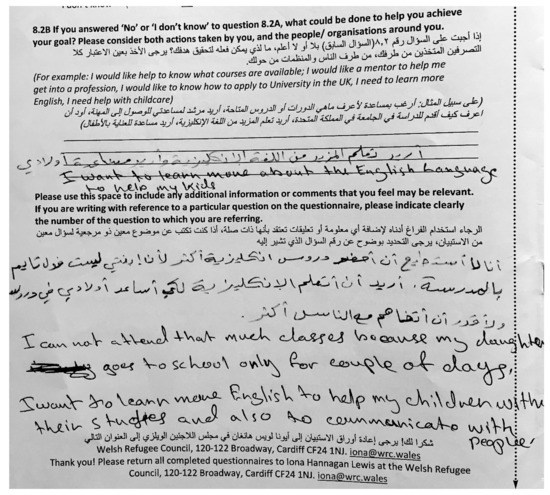 8.2B If you answered 'No' or 'I don't know' to question 8.2A, what could be done to help you achieve
your goal? Please consider both actions taken by you, and the people/ organisations around you.
إذا أجبت على السؤال رقم ٨,٢ (السؤال السابق) بلا أو لا أعلم، ما لذي يمكن فعله لتحقيق هدفك؟ يرجى الأخذ بعين الاعتبار كلا
التصرفين المتخذين من طرفك، من طرف الناس والمنظمات من حولك.
(For example: I would like help to know what courses are available; I would like a mentor to help me
get into a profession, I would like to know how to apply to University in the UK, I need to learn more
English, I need help with childcare)
(على سبيل المثال: أرغب بمساعدة لأعرف ماهي الدورات أو الدروس المتاحة، أريد مرشد لمساعدتي للوصول إلى المهنة، أود أن
اعرف كيف أقدم للدراسة في الجامعة في المملكة المتحدة، أريد تعلم المزيد من اللغة الإنكليزية، أريد مساعدة للعناية بالأطفال)
أريد تعلم المزيد من اللغة الإنكليزية وأريد مساعدة أولادي
I want to learn more about the English Language
to help my kids
Please use this space to include any additional information or comments that you feel may be relevant.
If you are writing with reference to a particular question on the questionnaire, please indicate clearly
the number of the question to which you are referring.
الرجاء استخدام الفراغ أدناه لإضافة أي معلومة أو تعليقات تعتقد بأنها ذات صلة، أذا كنت تكتب عن موضوع معين ذو مرجعية لسؤال معين
من الاستبيان، يرجى التحديد بوضوح عن رقم السؤال الذي تشير إليه
أنا لا أستطيع أن أحضر دروس انكليزية أكثر لأن ابنتي ليست فول تايم
بالمدرسة. أريد أن أتعلم الإنكليزية لكي أساعد أولادي في دروسهم
ولأقدر أن أتفاهم مع الناس أكثر.
I can not attend that much classes because my daughter
goes to school only for couple of days,
I want to learn more English to help my children with
their studies and also to communicate with
people.
شكرا لك! يرجى إعادة أوراق الاستبيان إلى أيونا لويس هانغان في مجلس اللاجئين الويلزي إلى العنوان التالي
Welsh Refugee Council, 120-122 Broadway, Cardiff CF24 1NJ. iona@wrc.wales
Thank you! Please return all completed questionnaires to Iona Hannagan Lewis at the Welsh Refugee
Council, 120-122 Broadway, Cardiff CF24 1NJ. iona@wrc.wales